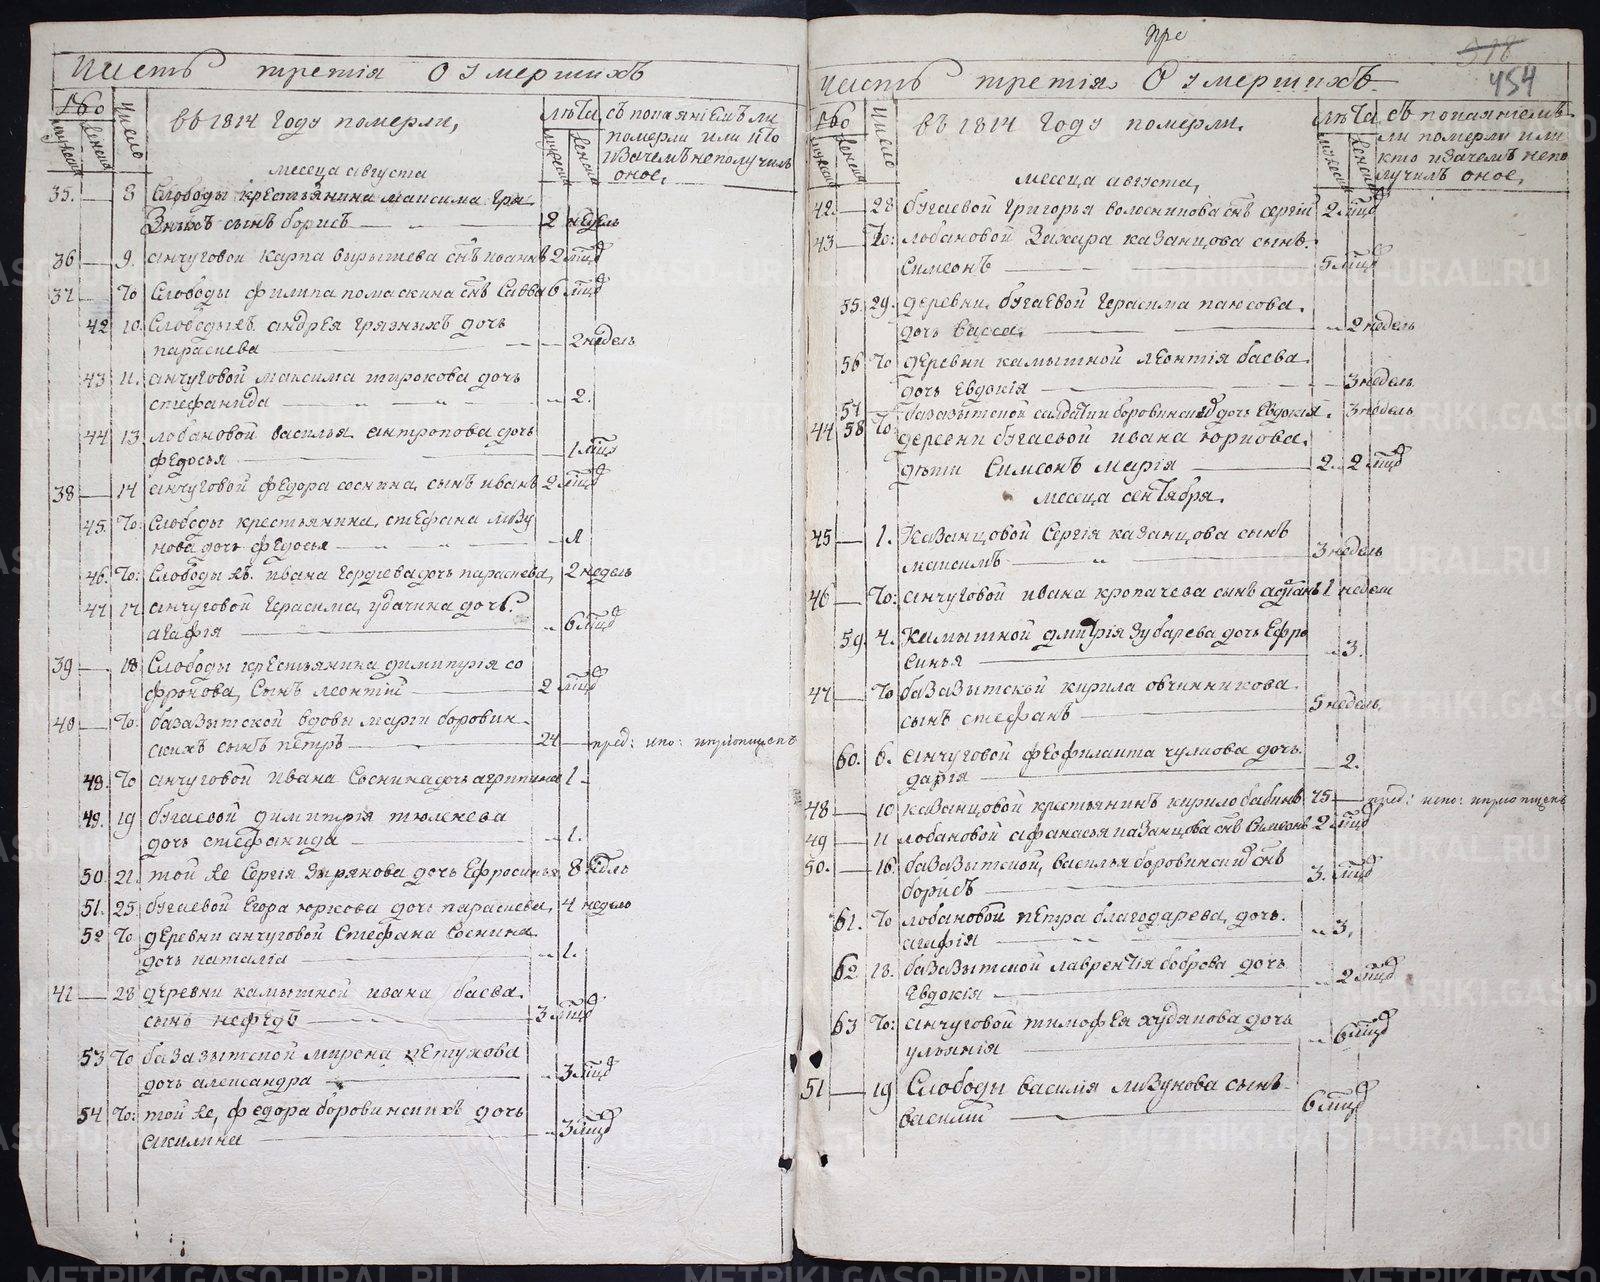 Часть третїя О Умершихъ
Число
въ 1814 году померли,
лѣта
съ покаянїемъ ли
померли или кто
и зачемъ неполучилъ
оное,
мужеска
женска
месеца августа
35. — 8 Слободы крестьянина максима Гря
зныхъ сынъ борисъ — 2 недель
36 — 9. анчуговой карпа сынъ иваннъ 2 мцъ
37 — То Слободы филипа сынъ Савва 6 мцъ
42 10. Слободы андрея грязныхъ дочь
параскева — 2 недель
43 11. анчуговой максима широкова дочь
стефанида — 2.
44 13 лобановой василья антропова дочь
федосья — 1 мцъ
38 — 14 анчуговой федора соснина сынъ иванъ 2 мцъ
45. То: Слободы крестьянина, стефана лизу
нова дочь федосья — 1
46. То: Слободы ивана Гордѣева дочь параскева, 2 недель
47 17 анчуговой Герасима, удачина дочь
агафїя — 6 мцъ
39 — 18 Слободы крестьянина димитрїя со
фронова, сынъ леонтїй — 2 мцъ
40 — То: базазытской вдовы боровин
скихъ сынъ петръ — 24 — пред: испо:
48. То анчуговой ивана Соснина дочь агрипина 1 -
49. 19 бугаевой димитрїя тюленева
дочь стефанида — 1.
50 21. той же Сергїя Зырянова дочь Ефросинья 8 недель
51. 25. бугаевой Егора юркова дочь параскева, 4 недель
52 То деревни анчуговой Стефана Соснина
дочь наталїа — 1.
41 — 28 деревни камышной ивана баева
сынъ нефедъ — 3 мцъ
53 То базазытской мирона петухова
дочь александра — 3 мцъ
54 То: той же, федора боровинскихъ дочь
акилина — 3 мцъ
пре
518
454
Часть третїя О Умершихъ
Число
въ 1814 году померли,
лѣта
съ покаянїемъ
ли померли или
кто и зачемъ непо
лучилъ оное,
мужеска
женска
месеца августа,
42. — 28 бугаевой Григорья волосникова снъ сергїй 2 мцъ
43 — То: лобановой Захара казанцова сынъ
Симеонъ — 5 мцъ
55. 29. деревни бугаевой Герасима
дочь васса — 2 недель
56 То деревни камышной леонтїя баева
дочь Евдокїя — 3 недель
57 То базазытской дочь Евдокїя. 3 недель
44 58 деревни бугаевой ивана юркова
дѣти Симеонъ марїя — 2. 2 мцъ
месеца сентября.
45 — 1. казанцовой Сергїя казанцова сынъ
максимъ — 3 недель
46 — То: анчуговой ивана кропачева сынъ 1 недели
59 4. Камышной дмитрїя зубарева дочь Ефро
синья — 3.
47 — То базазытской кирила овчинникова
сынъ стефанъ — 5 недель,
60. 6. анчуговой феофилакта чулкова дочь
дарїя — 2.
48 — 10 казанцовой крестьянинъ кирило бабинъ 75 — пред: испо:
49 — 11 лобановой афанасья казанцова снъ Симеонъ 2 мцъ
50. — 16. базазытской, василья боровинских снъ
борисъ — 3. мцъ
61. То лобановой петра благодарева, дочь.
агафїя — 3.
62 18. базазытской лаврентїя боброва дочь
Евдокїя — 2 мцъ
63 То: анчуговой тимофея худякова дочь
ульянїя — 6 мцъ
51 — 19 Слободы василїя лизунова сынъ
василїй — 6 мцъ
METRIKI.GASO-URAL.RU